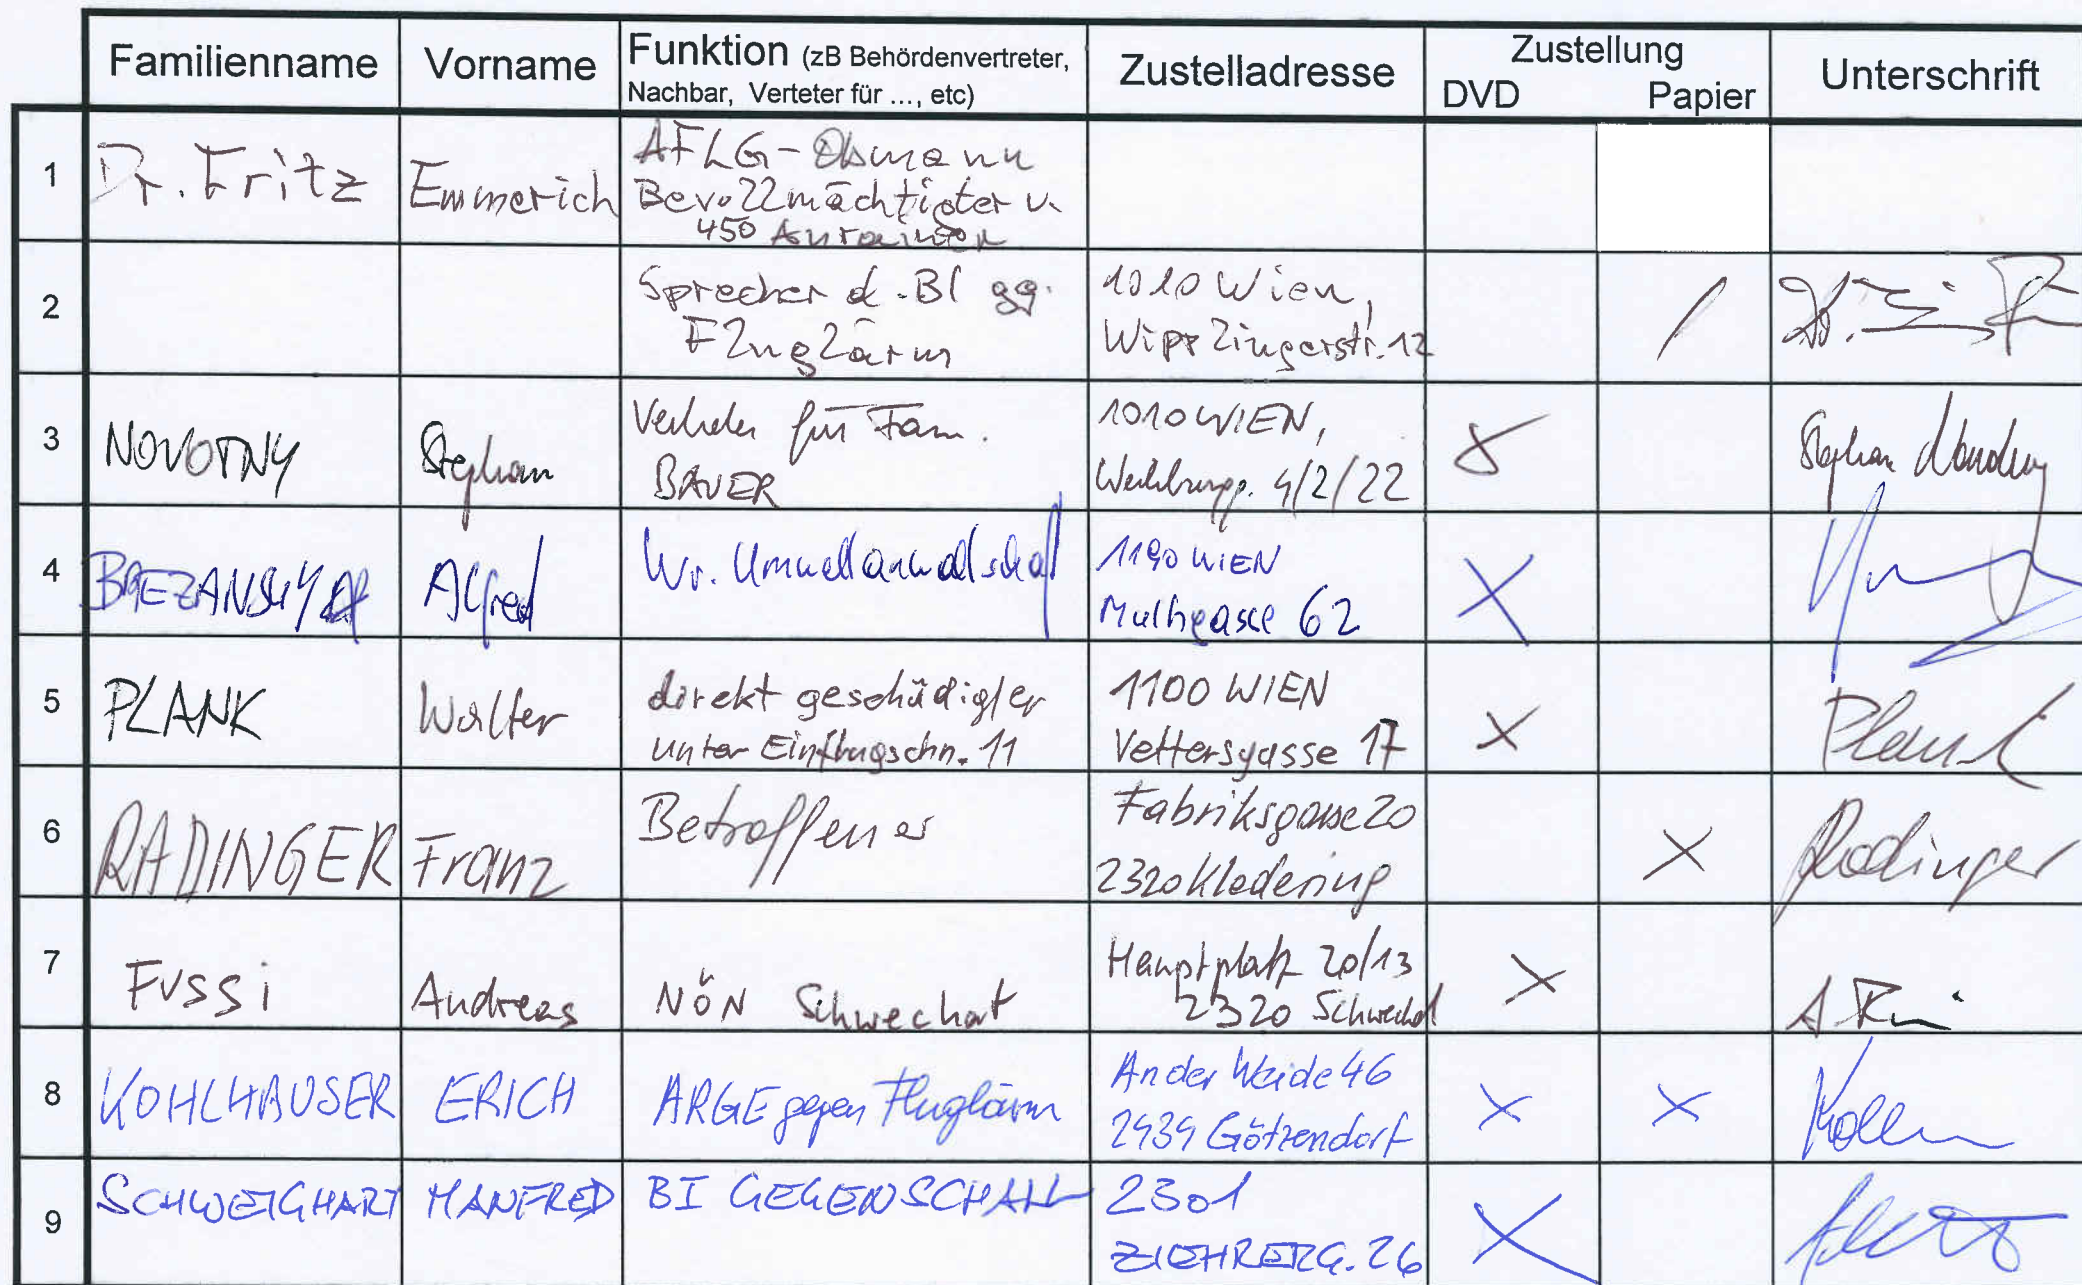 Familienname Vorname Funktion (zB Behördenvertreter, Nachbar, Verteter für ..., etc) Zustelladresse Zustellung DVD Papier Unterschrift
1 Dr. Fritz Emmerich AFLG-Obmann
Bevollmächtigter v.
450 Anrainer
2 Sprecher d. BI gg. 1010 Wien,
Fluglärm Wipplingerstr. 12 /
3 NOVOTNY Stephan Vertreter für Fam. 1010 WIEN, Stephan Novotny
BAUER Weihburgg. 4/2/22 X
4 BREZANSKY Alfred Wr. Umweltanwaltschaft 1190 WIEN X
Muthgasse 62
5 PLANK Walter direkt geschädigter 1100 WIEN X Plank
unter Einflugschn. 11 Vettersgasse 17
6 RADINGER Franz Betroffener Fabriksgasse 20 X Radinger
2320 Kledering
7 FUSSi Andreas NÖN Schwechat Hauptplatz 20/13 X
2320 Schwechat
8 KOHLHAUSER ERICH ARGE gegen Fluglärm An der Weide 46 X X
2434 Götzendorf
9 SCHWEIGHART MANFRED BI GEGENSCHALL 2301 X
ZIEHRERG. 26